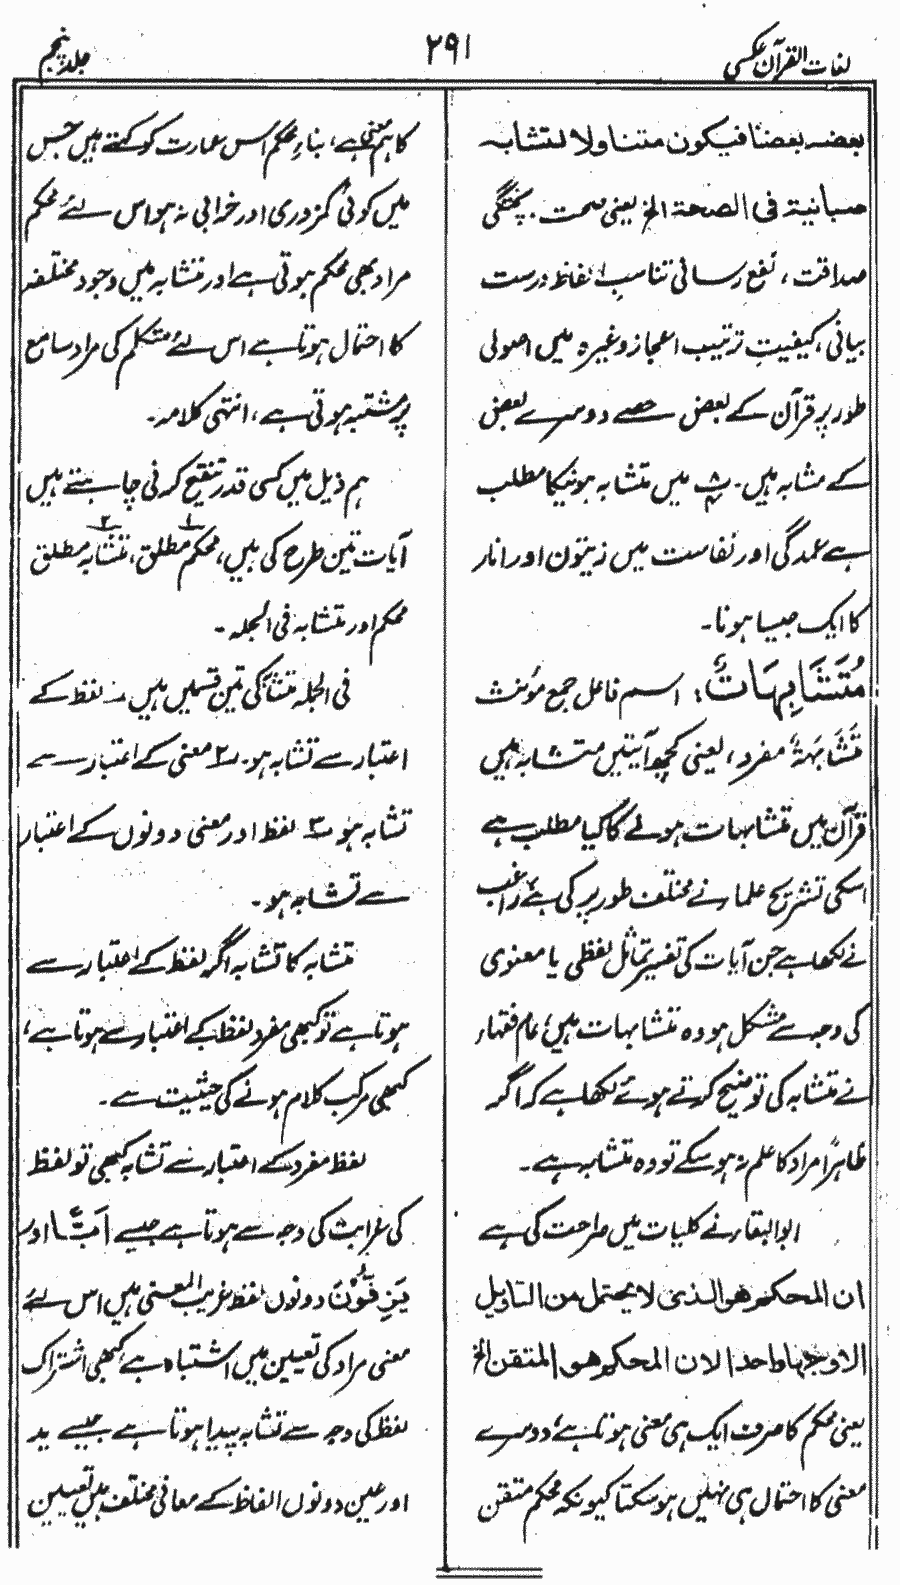 لغات القرآن عکسی
۲۹۱
جلد پنجم
بعضہ بعضا فیکون متناولا لتشابہ
مبانیۃ فی الصحۃ الخ یعنی صحت۔ پختگی
صداقت، نفع رسانی تناسب الفاظ درست
بیانی، کیفیت ترتیب اعجاز وغیرہ میں اصولی
طور پر قرآن کے بعض حصے دوسرے بعض
کے مشابہ ہیں۔ میں متشابہ ہونیکا مطلب
ہے عمدگی اور نفاست میں زیتون اور انار
کا ایک جیسا ہونا۔
مُتَشَابِہَاتٌ: اسم فاعل جمع مؤنث
مُتَشَابِہَۃٌ مفرد، یعنی کچھ آیتیں متشابہ ہیں
قرآن میں متشابہات ہونے کا کیا مطلب ہے
اسکی تشریح علماء نے مختلف طور پر کی ہے راغب
نے لکھا ہے جن آیات کی تفسیر تماثل لفظی یا معنوی
کی وجہ سے مشکل ہو وہ متشابہات ہیں؛ عام فقہاء
نے متشابہ کی توضیح کرتے ہوئے لکھا ہے کہ اگر
ظاہراً مراد کا علم نہ ہو سکے تو وہ متشابہ ہے۔
ابو البقاء نے کلیات میں صراحت کی ہے
ان المحکم ھو الذی لا یحتمل من التاویل
الا وجہا واحدا لان المحکم ھو المتقن الخ
یعنی محکم کا صرف ایک ہی معنی ہوتا ہے، دوسرے
معنی کا احتمال ہی نہیں ہو سکتا کیونکہ محکم متقن
کا ہم معنی ہے، بناء محکم اس عمارت کو کہتے ہیں جس
میں کوئی کمزوری اور خرابی نہ ہو اس لئے محکم
مراد بھی محکم ہوتی ہے اور متشابہ میں وجود مختلفہ
کا احتمال ہوتا ہے اس لئے متکلم کی مراد سامع
پر مشتبہ ہوتی ہے، انتہی کلامہ۔
ہم ذیل میں کسی قدر تنقیح کرنی چاہتے ہیں
آیات تین طرح کی ہیں، ۱ محکم مطلق، ۲ متشابہ مطلق
محکم اور متشابہ فی الجملہ۔
فی الجملہ متشابہ کی تین قسمیں ہیں ۱ لفظ کے
اعتبار سے تشابہ ہو۔ ۲ معنی کے اعتبار سے
تشابہ ہو ۳ لفظ اور معنی دونوں کے اعتبار
سے تشابہ ہو۔
متشابہ کا تشابہ اگر لفظ کے اعتبار سے
ہوتا ہے تو کبھی مفرد لفظ کے اعتبار سے ہوتا ہے،
کبھی مرکب کلام ہونے کی حیثیت سے۔
لفظ مفرد کے اعتبار سے تشابہ کبھی تو لفظ
کی غرابت کی وجہ سے ہوتا ہے جیسے اَبًّا اور
یَزِفُّوْنَ دونوں لفظ غریب المعنی ہیں اس لئے
معنی مراد کی تعیین میں اشتباہ ہے کبھی اشتراک
لفظ کی وجہ سے تشابہ پیدا ہوتا ہے جیسے ید
اور عین دونوں الفاظ کے معانی مختلف ہیں تعیین